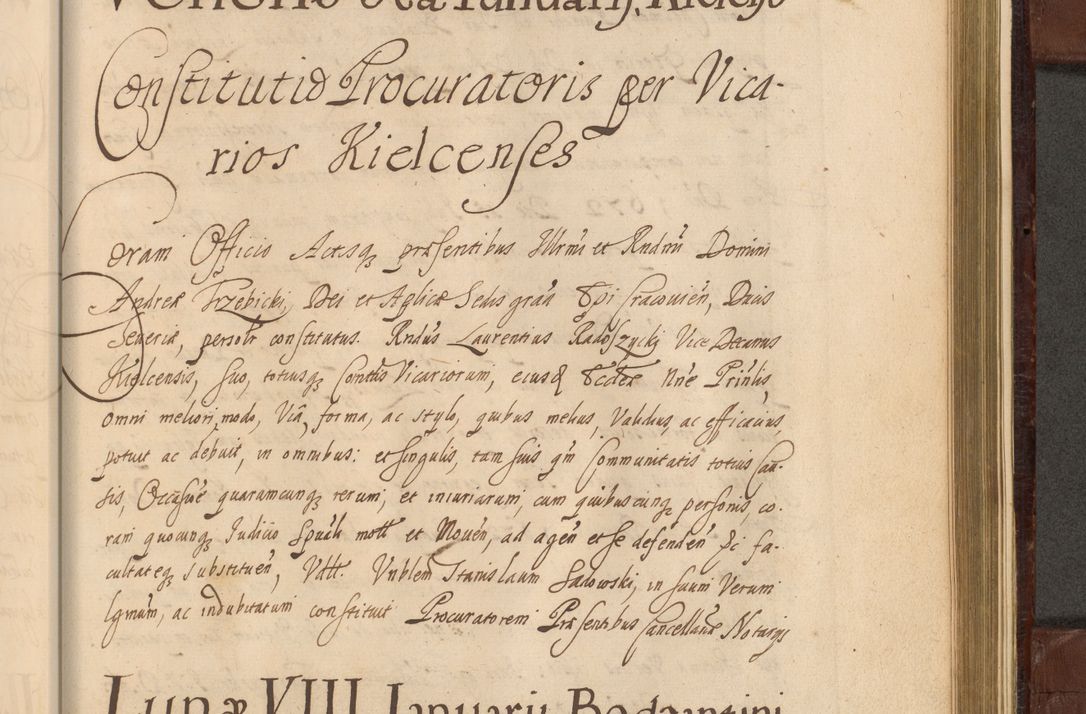 Constitutio Procuratoris per Vica-
rios Kielcenses
Coram Officio Actisq præsentibus Illrmi et Rndmi Domini
Andreæ Trzebicki, Dei et Aplicæ Sedis grãa Epi Cracovien, Ducis
Severiæ, persolr constitutus. Rndus Laurentius Radoszycki Vice Decanus
Kielcensis, suo, totiusq Conttus Vicariorum, eiusd Eccłæ Nne Prinlis
omni meliori modo, Via, forma, ac stylo, quibus melius, Validius, ac efficacius,
potuit ac debuit, in omnibus: et singulis, tam suis qm Communitatis totius Cau-
sis, Occasioe quarumcunq rerum, et iniuriarum, cum quibuscunq personis, co-
ram quocunq Iudicio Spũali mott et Moven, ad agen et se defenden &c fa-
cultateq substituen, Vdtt. Vnblem Stanislaum Sadowski, in suum Verum
lgmum, ac indubitatum constituit Procuratorem Præsentibus Cancellariæ Notarijs
Lunæ VIII Ianuarij Bodzentini